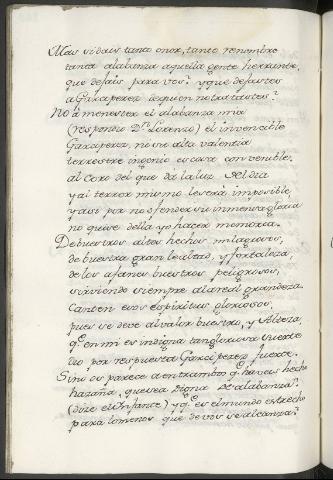 Mas si dais tanto onor, tanto renombre
tanta alabanza aquella gente herrante,
que dejais para vos? yque dejastes
a Garciperez de quien no tratastes?
No a menester el alabanza mia
(respondio Dn. Lorenzo) el invencible
Garciperez, ni su alta valentia
terrestre ingenio es cara convenible,
al Coro del que da la luz Al dia
y al terror mismo le sera imposible,
y assi por no ofender su inmensa gloria
no quise della yo hacer memoria.
De buestros altos hechos milagrosos,
de buestra gran lealtad, y fortaleza,
de los afanes buestros peligrosos,
sirviendo siempre a la real grandeza
Canten esos espiritus gloriosos,
pues se deve al valor buestro, y Alteza,
q. en mi es indigna tan gloriosa suerte
dio por respuesta Garci perez fuerte.
Si no os parece a entrambos q. haveis hecho
hazaña, que sea digna de alabanza?
(dice el Infante) y q. es el mundo estrecho
para lo menos que de vos se alcanza?